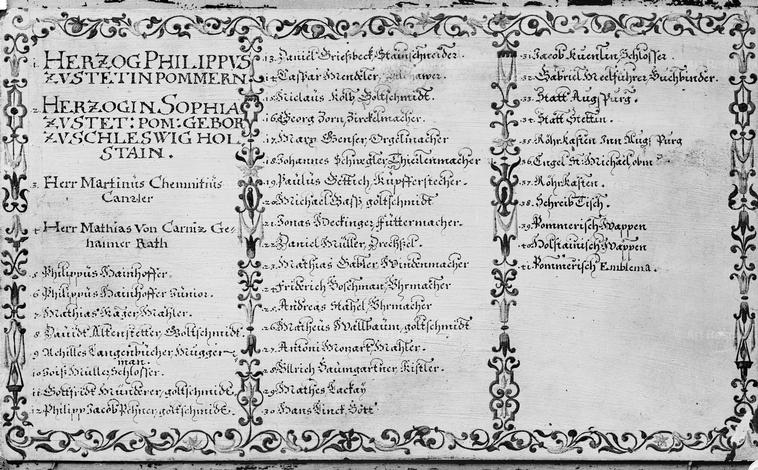 1. HERZOG PHILIPPVS
ZV STETIN POMMERN.
2. HERZOGIN SOPHIA
ZV STET: POM: GEBOR
ZV SCHLESWIG HOL
STAIN.
3. Herr Martinus Chemnitius
Canzler
4. Herr Mathias Von Carniz Ge-
haimer Rath
5 Philippus Hainhoffer
6 Philippus Hainhoffer Junior.
7. Mathias Kager, Mahler.
8. Dauidt Altenstetter, Goltschmidt.
9 Achilles Langenbucher,
man.
10 Müller Schlosser.
11 Gottfridt Münderer, goltschmidt.
12 Philipp Jacob goltschmidt.
13. Daniel Griesbeck Stainschneider.
14 Caspar Mendeler,
15. Niclaus Kolb, Goltschmidt.
16 Georg Zorn, Zirckelmacher.
17. Marx Genser, Orgelmacher
18 Johannes Schwegler
19 Paulus Göttich, Kupfferstecher.
20 Michael Gass, goltschmidt
21 Jonas Heckinger, Futtermacher.
22 Daniel Müller,
23 Mathias Gabler Windenmacher
24 Friderich Vhrmacher
25. Andreas Stahel Vhrmacher
26 Matheus Wallbaum, goltschmidt
27. Antoni Mozart, Mahler.
28. Vllrich Baumgartner, Kistler.
29. Mathes Lackay
30 Hans
31. Jacob Kuentlin Schlosser.
32 Gabriel Melfuhrer, Buchbinder.
33. Statt Augspurg.
34 Statt Stettin.
35 Röhrkasten Inn Augspurg
36. Engel St: Michael
37. Röhrkasten.
38. Schreib Tisch.
39. Pommerisch Wappen
40 Holstainisch Wappen
41. Pommerisch Emblema.